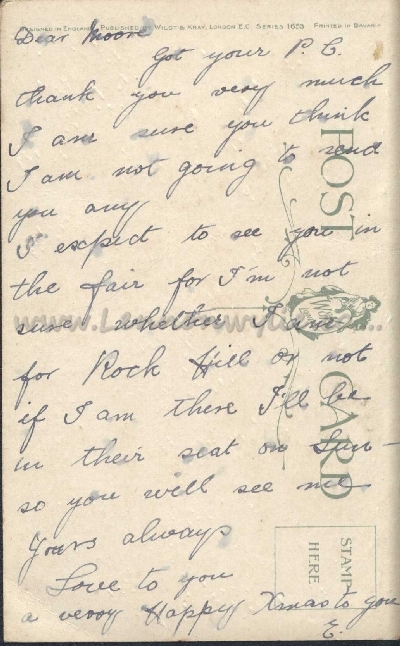 Designed in England Published by Wildt & Kray, London E.C. Series 1623 Printed in Bavaria
Dear Moore
Got your P. C.
thank you very much
I am sure you think
I am not going to send
you any
I expect to see you in
the fair for I'm not
sure whether I am
for Rock Hill or not
if I am there I'll be
in their seat on Sun-
so you will see me
Yours always
Love to you
a verry Happy Xmas to you
E.
POST CARD
STAMP
HERE